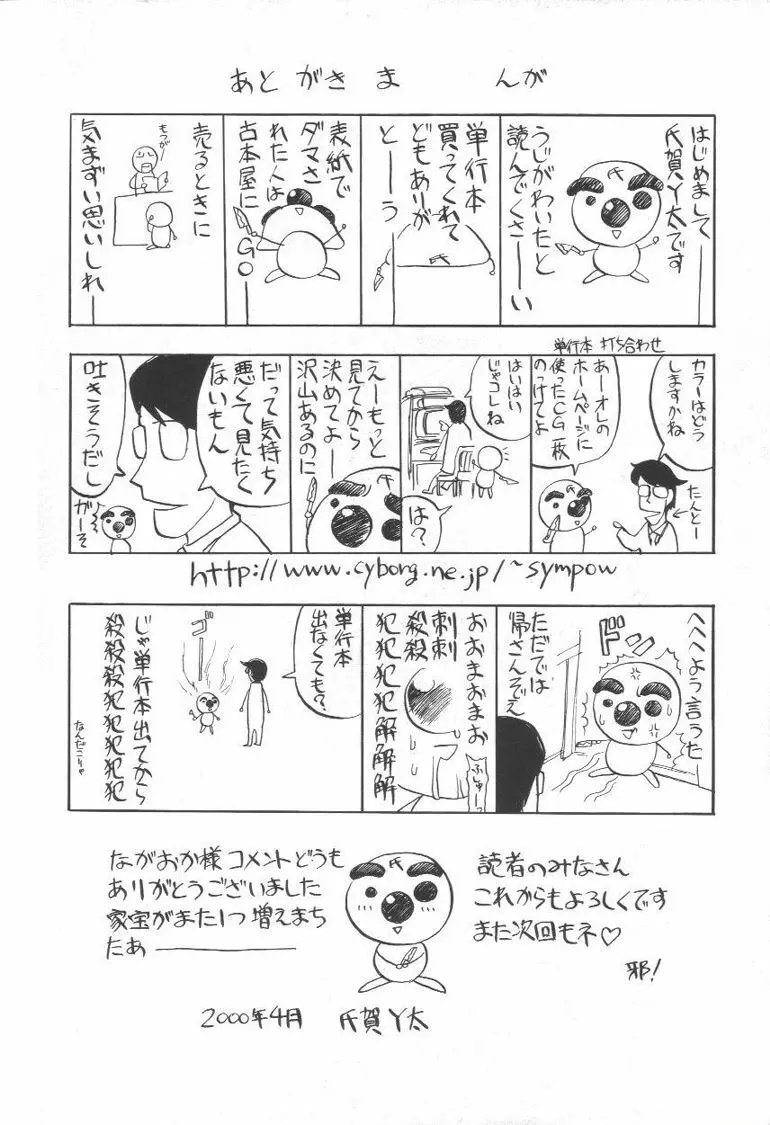 あとがきまんが
はじめましてー
氏賀Y太です
うじがわいたと
読んでくさーい
氏
単行本
買ってくれて
どもありが
とーう
氏
表紙で
ダマさ
れた人は
古本屋に
GOー
売るときに
気まずい思いしれー
もつが
単行本 打ち合わせ
カラーはどう
しますかね
たんとー
あーオレの
ホームページに
使ったCG一枚
のっけてよ
氏
はいはい
じゃコレね
は?
えーもっと
見てから
決めてよー
沢山あるのに
氏
だって気持ち
悪くて見たく
ないもん
吐きそうだし
がーそ
http://www.cyborg.ne.jp/~sympow
へへへよう言うたー
ドドン
ただでは
帰さんぞえ
おおまおまお
刺刺
殺殺
犯犯犯犯解解解解
ぶしゅーっ
単行本
出なくても?
ゴー
じゃ単行本出てから
殺殺殺犯犯犯犯犯
なんだこりゃ
読者のみなさん
これからもよろしくです
また次回もネ♡
邪!
氏
ながおか様コメントどうも
ありがとうございました
家宝がまた1つ増えまち
たあ――――
2000年4月 氏賀Y太